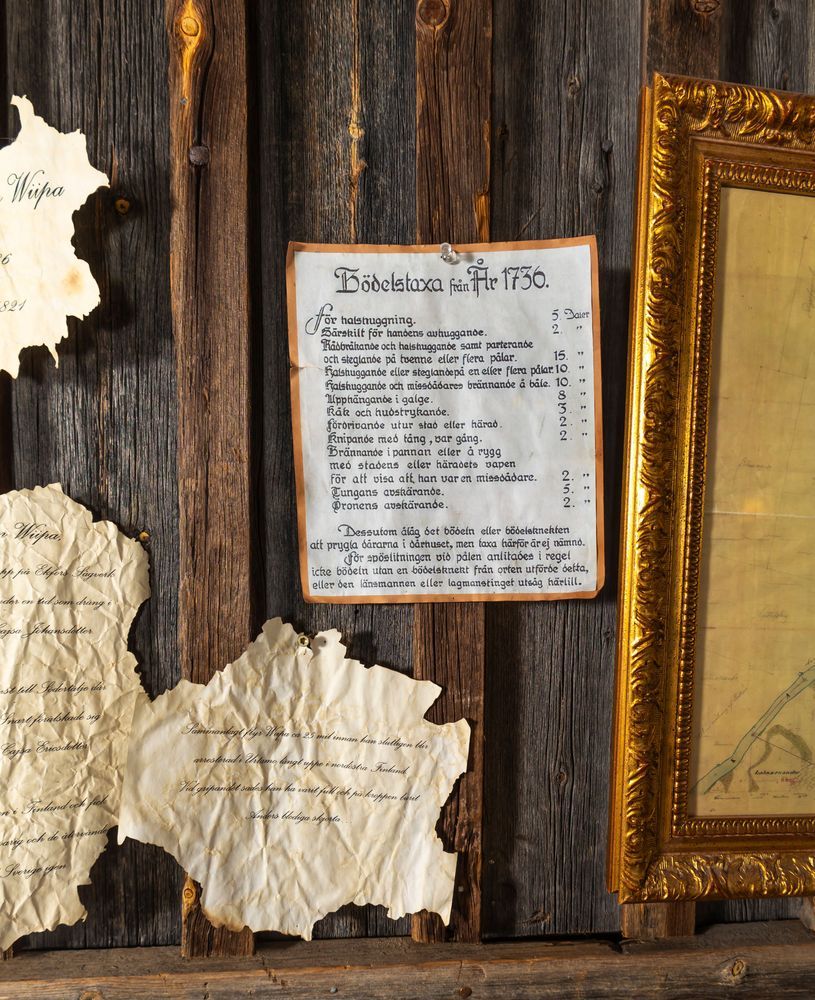 Wiipa
1821
Bödelstaxa från År 1736.
För halshuggning. 5. Daler
Särskilt för handens avhuggande. 2. "
Rådbråkande och halshuggande samt parterande
och steglande på tvenne eller flera pålar. 15. "
Halshuggande eller steglande på en eller flera pålar. 10. "
Halshuggande och missdådares brännande å båle. 10. "
Upphängande i galge. 8 "
Kåk och hudstrykande. 3. "
Fördrivande utur stad eller härad. 2. "
Knipande med tång, var gång. 2. "
Brännande i pannan eller å rygg
med stadens eller häradets vapen
för att visa att han var en missdådare. 2. "
Tungans avskärande. 5. "
Öronens avskärande. 2. "
Dessutom ålåg det bödeln eller bödelsknekten
att prygla dårarna i dårhuset, men taxa härför är ej nämnd.
För spöslitningen vid pålen anlitades i regel
icke bödeln utan en bödelsknekt från orten utförde detta,
eller den länsmannen eller lagmanstinget utsåg härtill.
Wiipa,
på Ekfors Sågverk
en tid som dräng i
Cajsa Johansdotter
till Södertälje där
Snart förälskade sig
Cajsa Ericsdotter
i Finland och fick
och de återvände
Sverige igen
Sammanlagt flyr Wiipa ca 25 mil innan han slutligen blir
arresterad i Urtamo långt uppe i nordöstra Finland
Vid gripandet sades han ha varit full och på kroppen burit
Anders blodiga skjorta